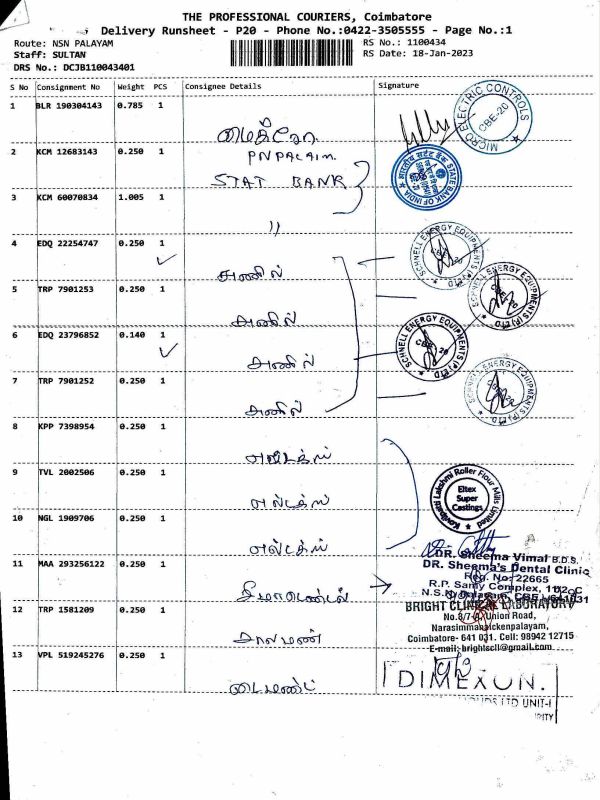 THE PROFESSIONAL COURIERS, Coimbatore
Delivery Runsheet - P20 - Phone No.:0422-3505555 - Page No.:1
Route: NSN PALAYAM RS No.: 1100434
Staff: SULTAN RS Date: 18-Jan-2023
DRS No.: DCJB110043401
S No Consignment No Weight PCS Consignee Details Signature
1 BLR 190304143 0.785 1
MICRO ELECTRIC CONTROLS CBE-20
PNPALAIM.
2 KCM 12683143 0.250 1
STAT BANK
STATE BANK OF INDIA
3 KCM 60070834 1.005 1
"
4 EDQ 22254747 0.250 1
அனில்
SCHNELL ENERGY EQUIPMENTS (P) LTD CBE-20
5 TRP 7901253 0.250 1
அனில்
SCHNELL ENERGY EQUIPMENTS (P) LTD CBE-20
6 EDQ 23796852 0.140 1
அனில்
SCHNELL ENERGY EQUIPMENTS (P) LTD CBE-20
7 TRP 7901252 0.250 1
அனில்
SCHNELL ENERGY EQUIPMENTS (P) LTD CBE-20
8 KPP 7398954 0.250 1
எல்டக்ஸ்
9 TVL 2002506 0.250 1
எல்டக்ஸ்
Kovilpatti Lakshmi Roller Flour Mills Limited
Eltex
Super
Castings
10 NGL 1909706 0.250 1
எல்டக்ஸ்
11 MAA 293256122 0.250 1
DR. Sheema Vimal B.D.S.
DR. Sheema's Dental Clinic
Reg. No: 22665
R.P. Samy Complex, 1102-C
சீமாடெண்டல்
12 TRP 1581209 0.250 1
BRIGHT CLINICAL LABORATORY
Union Road,
Narasimmanaickenpalayam,
Coimbatore- 641 031. Cell: 98942 12715
E-mail: brightscll@gmail.com
13 VPL 519245276 0.250 1
டைமண்ட்
DIMEXON.
LTD UNIT-I